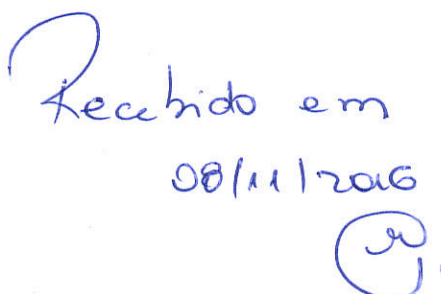 Recebido em
08/11/2016